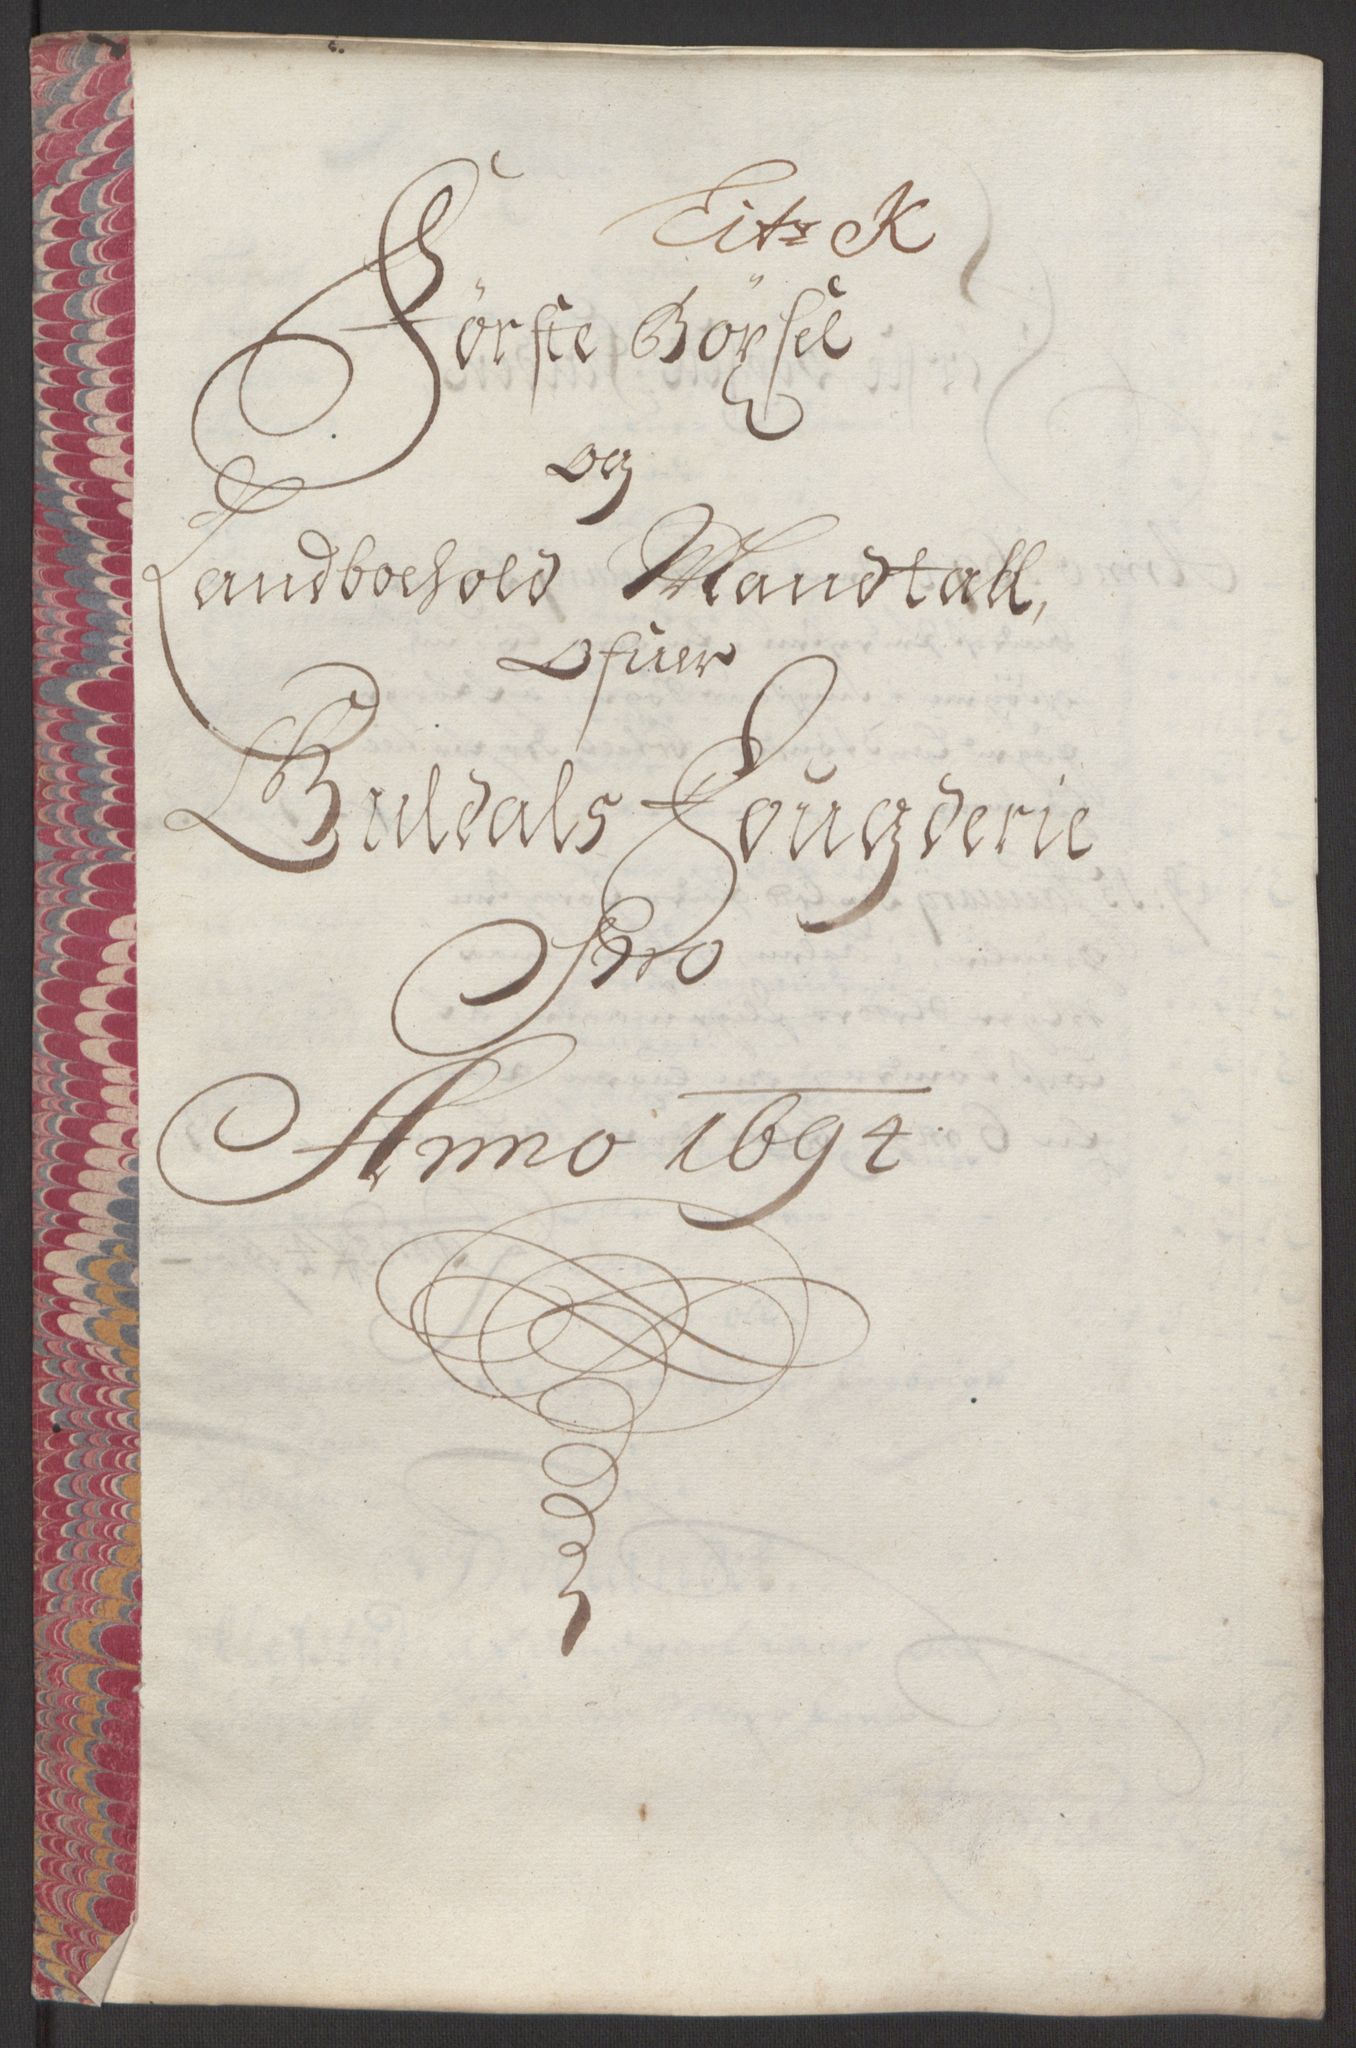 Litr K
Förste Böxsel
og
Landboehold Mandtall,
ofuer
Guldals Fougderie
Pro
Anno 1694.